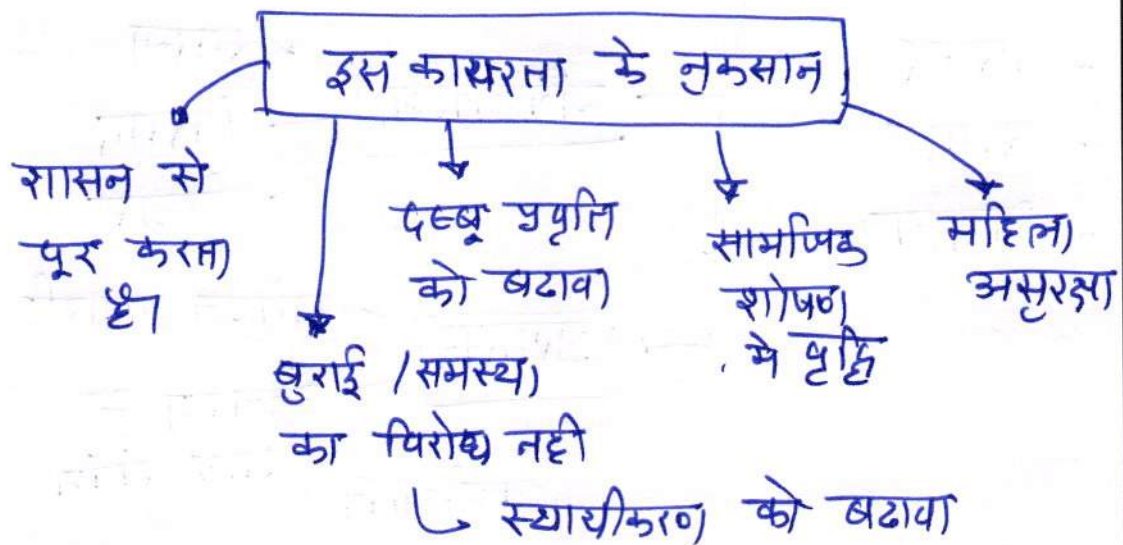 इस कायरता के नुकसान
शासन से
दूर करता
है।
बुराई / समस्या
का विरोध नही
↳ स्थायीकरण को बढावा
दब्बू प्रवृति
को बढावा
सामाजिक
शोषण
मे वृद्धि
महिला
असुरक्षा